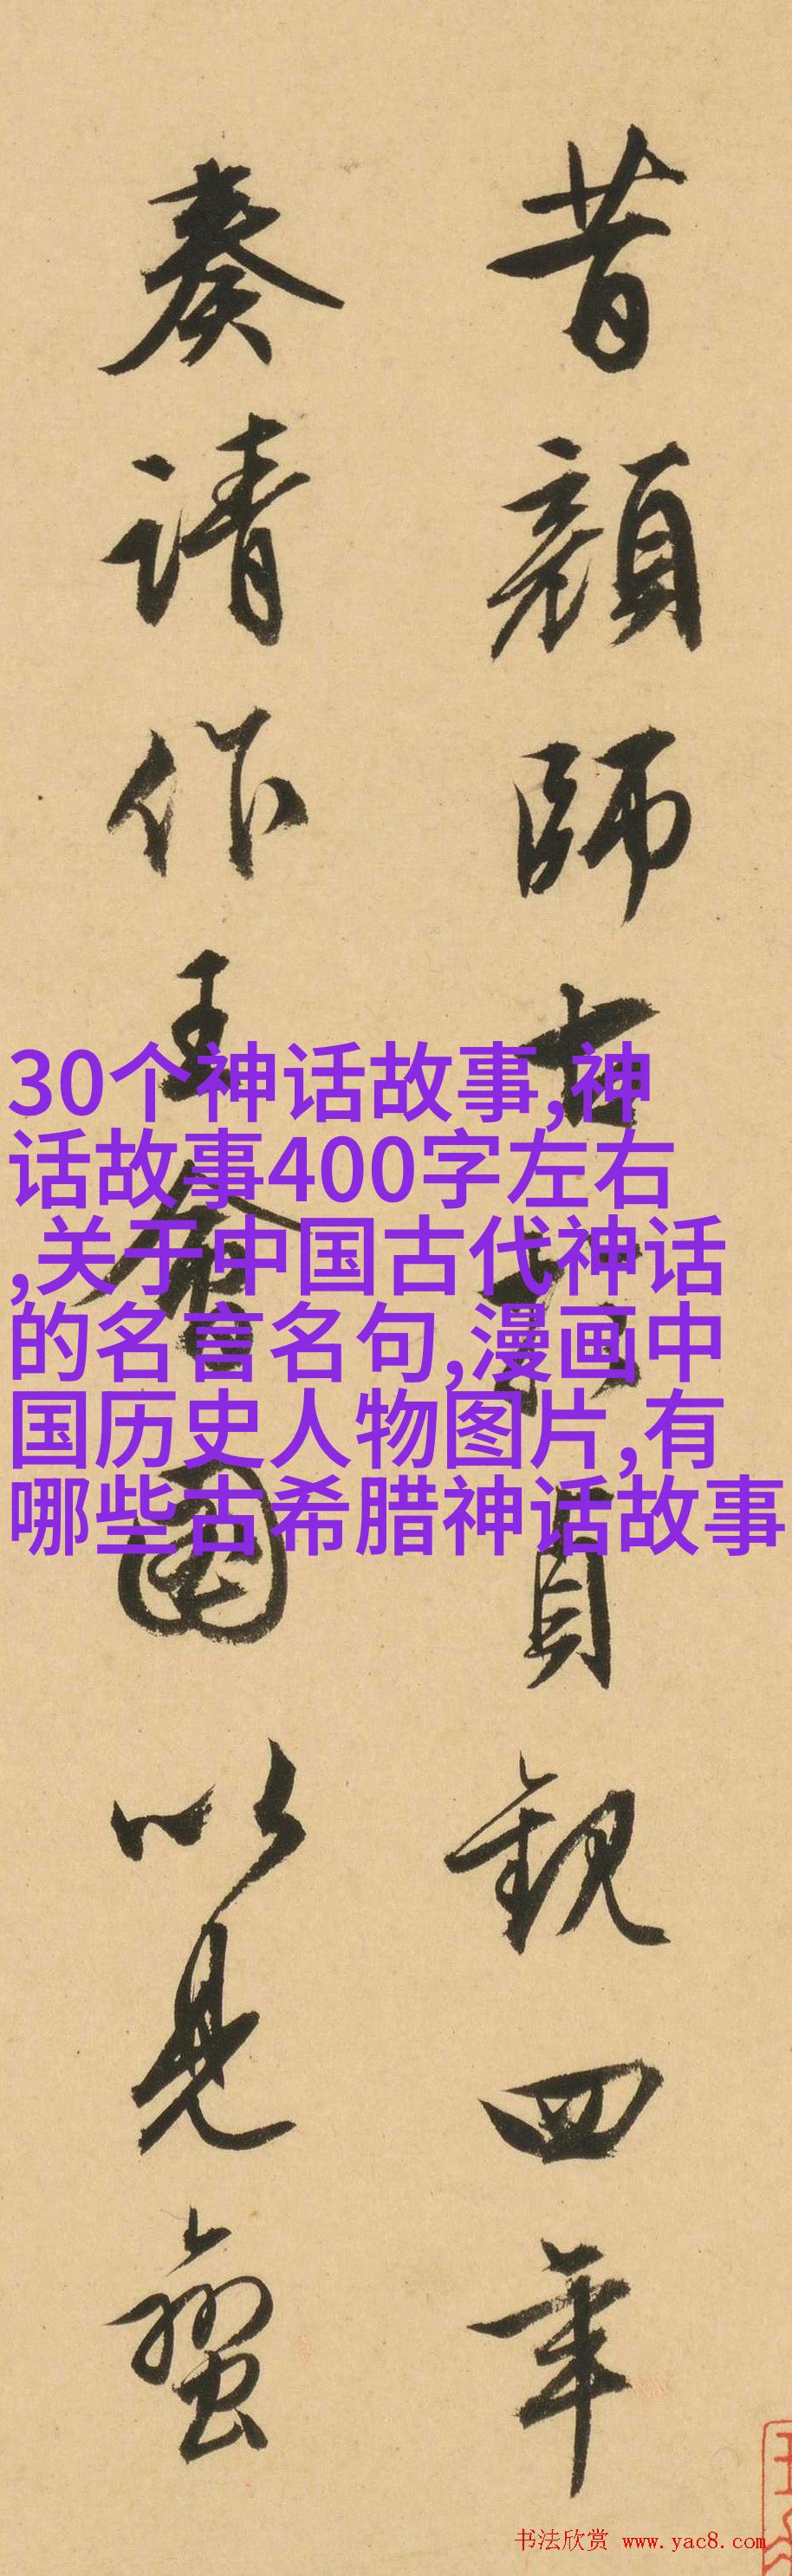 昔顔師古於貞觀四年
奏請作王會圖以見蠻
30个神话故事,神
话故事400字左右
,关于中国古代神话
的名言名句,漫画中
国历史人物图片,有
哪些古希腊神话故事
书法欣赏 www.yac8.com